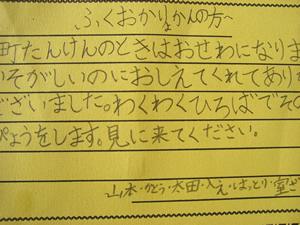 ふくおかりょかんの方へ
町たんけんのときはおせわになりま
そがしいのにおしえてくれてあり
ざいました。わくわくひろばでその
ぴょうをします。見に来てください。
山本・かとう・太田・入え・はっとり・室